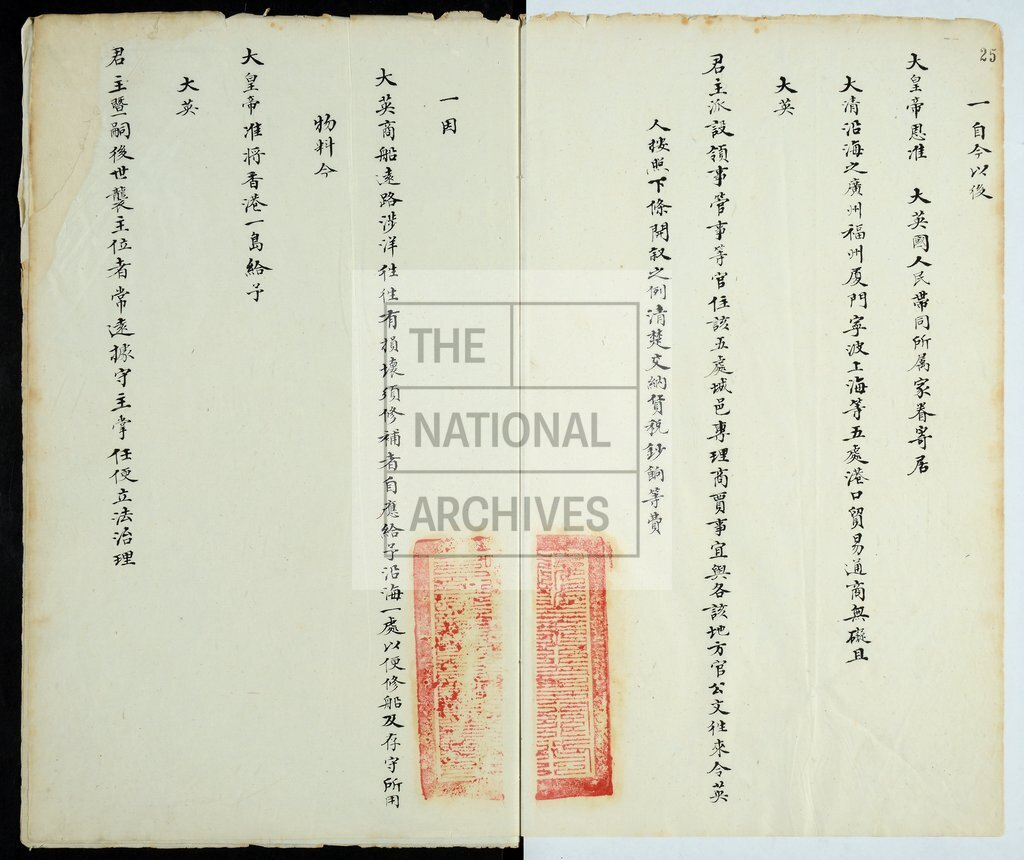 25
一自今以後
大皇帝恩准 大英國人民帶同所屬家眷寄居
大清沿海之廣州福州厦門寧波上海等五處港口貿易通商無礙且
大英
君主派設領事管事等官住該五處城邑專理商賈事宜與各該地方官公文往來令英
人按照下條開叙之例清楚交納貨税鈔餉等費
一因
大英商船遠路涉洋往往有損壞須修補者自應給予沿海一處以便修船及存守所用
物料今
大皇帝准將香港一島給予
大英
君主暨嗣後世襲主位者常遠據守主掌任便立法治理
THE
NATIONAL
ARCHIVES